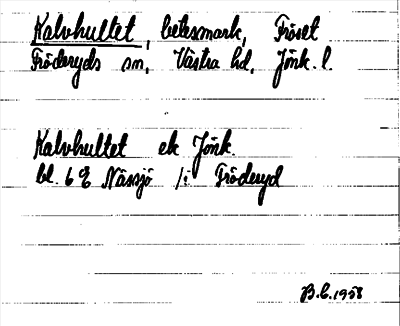 Kalvhultet, betesmark, Fröset
Fröderyds sn, Västra hd, Jönk. l.
Kalvhultet ek Jönk.
bl. 6 E Nässjö /: Fröderyd
B.E. 1958